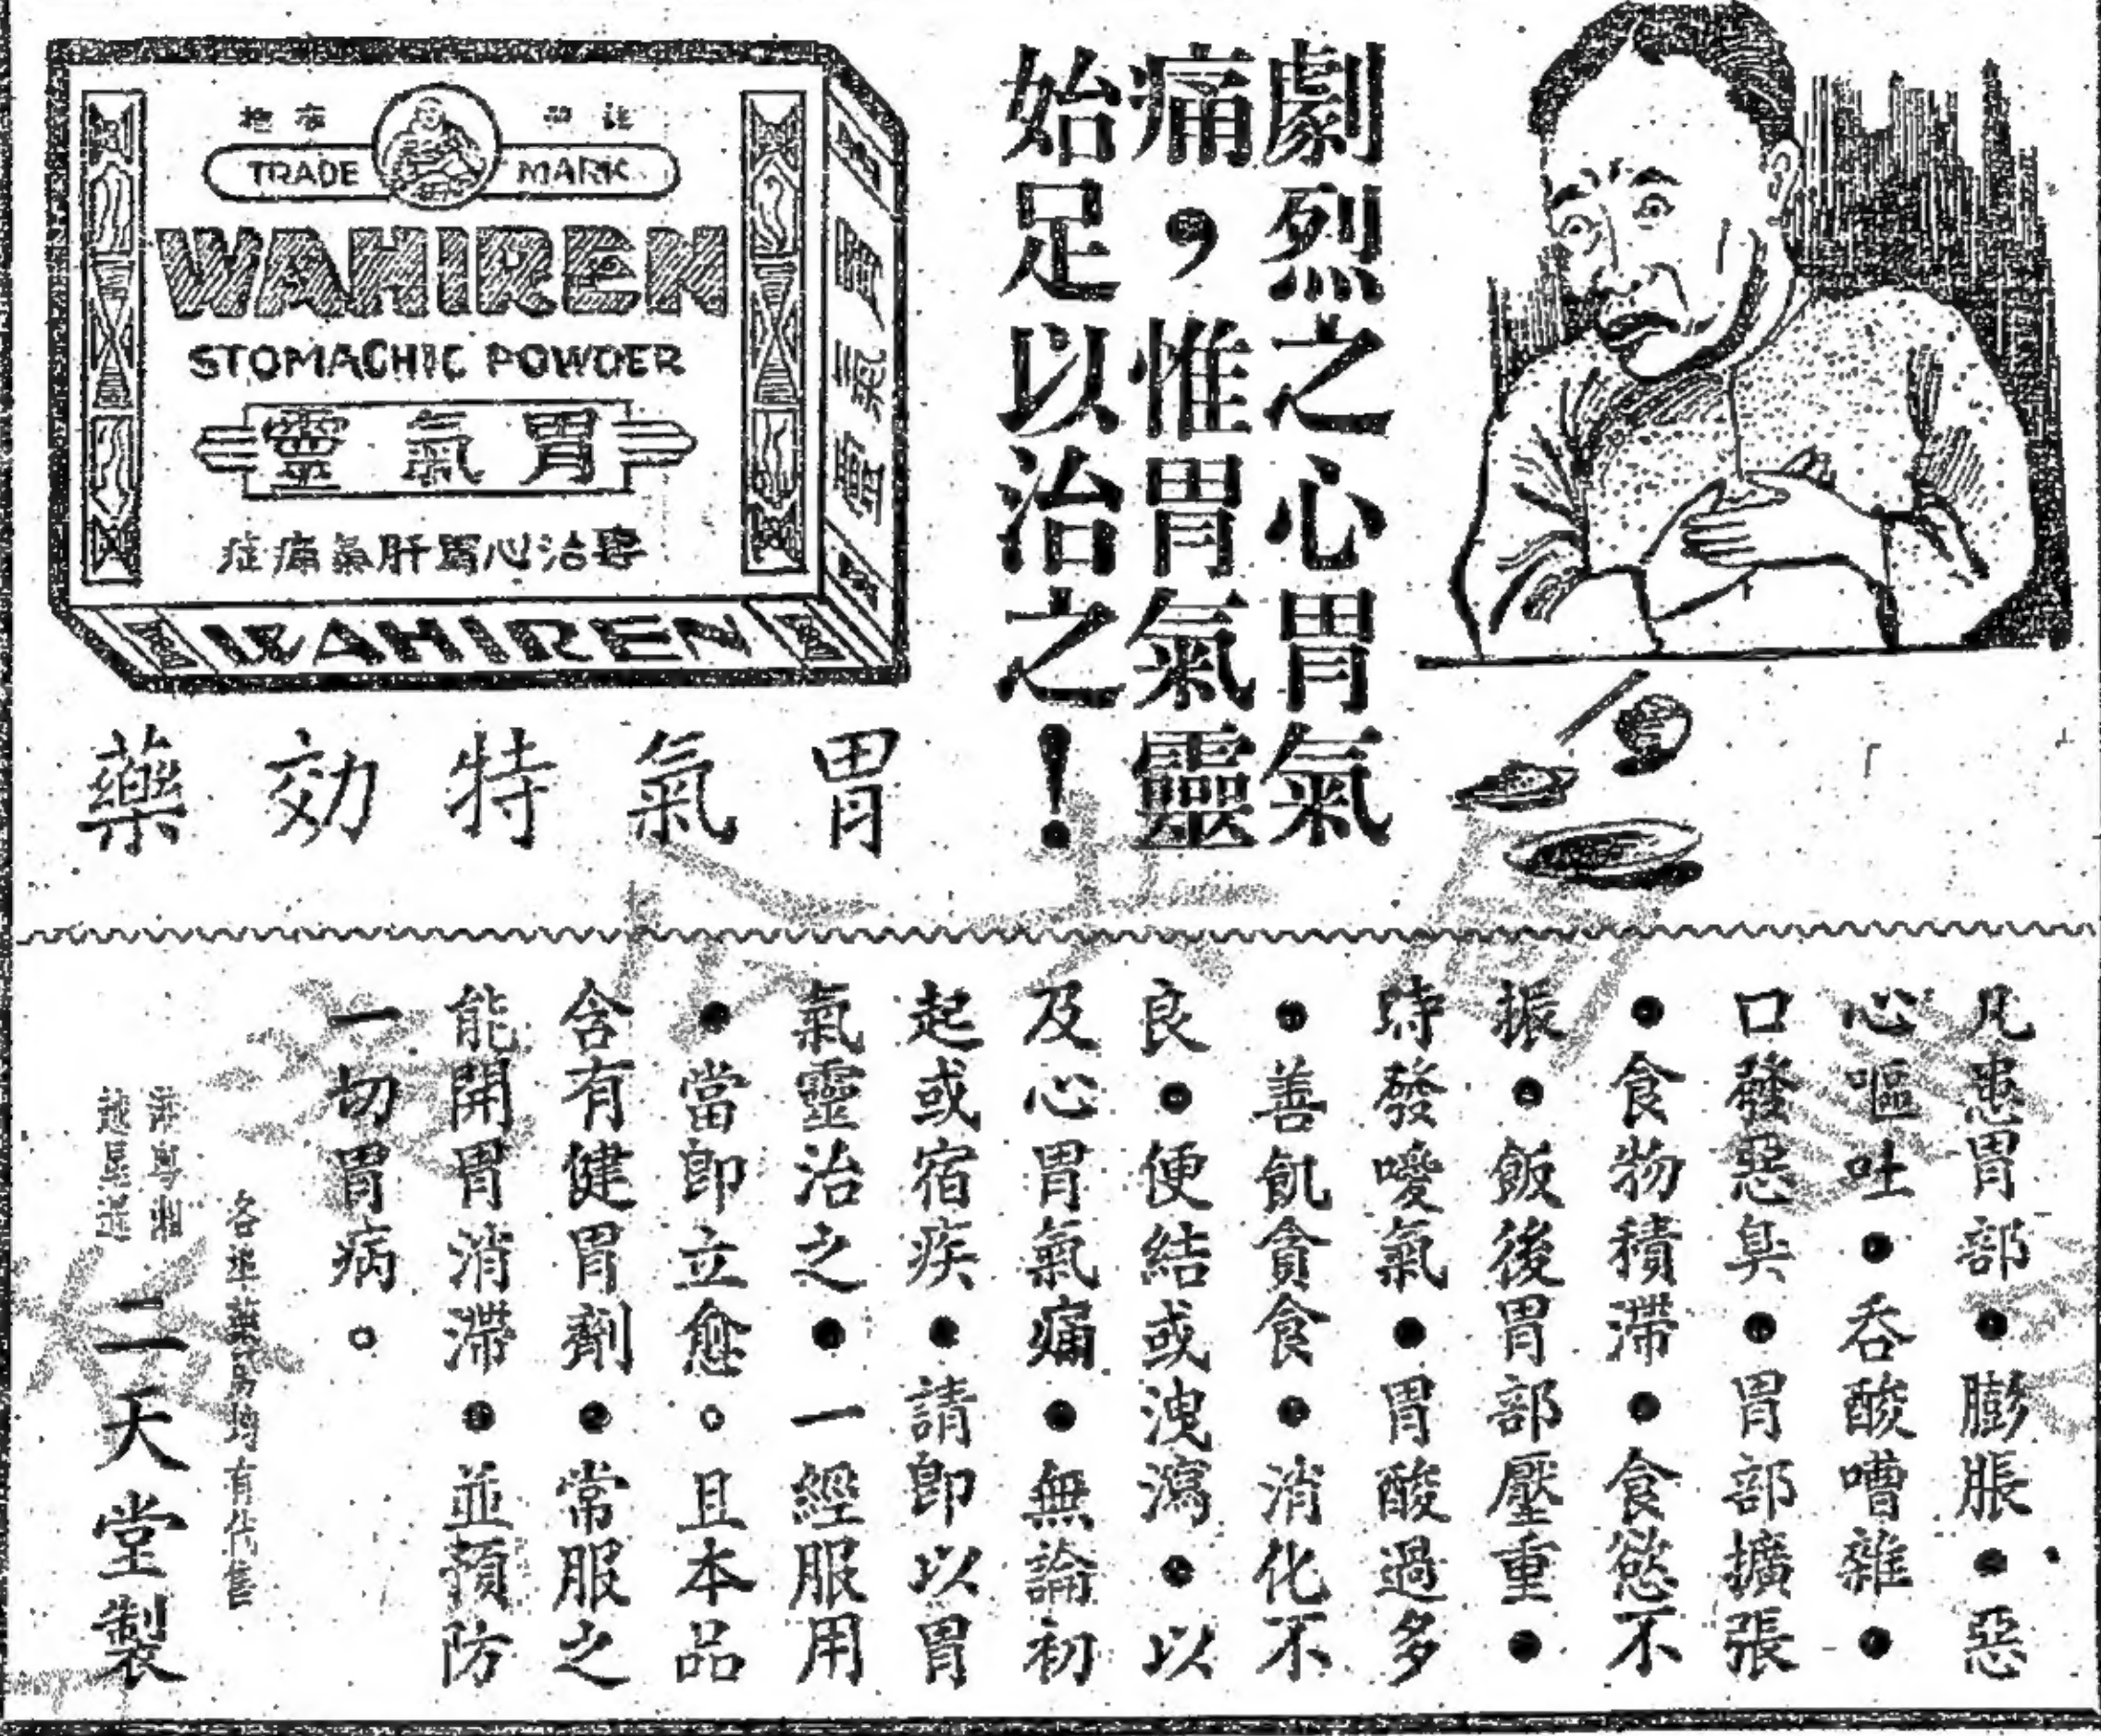 劇烈之心胃氣
痛，惟胃氣靈
始足以治之！
TRADE MARK
WAHIREN
STOMACHIC POWDER
胃氣靈
專治心胃肝氣痛症
WAHIREN
胃氣靈
胃氣特効藥
凡患胃部●膨脹●惡
心嘔吐●吞酸嘈雜●
口發惡臭●胃部擴張
●食物積滯●食慾不
振●飯後胃部壓重●
時發噯氣●胃酸過多
●善飢貪食●消化不
良●便結或洩瀉●以
及心胃氣痛●無論初
起或宿疾●請即以胃
氣靈治之●一經服用
●當即立愈○且本品
含有健胃劑●常服之
能開胃消滯●並預防
一切胃病○
均有代售
二天堂製